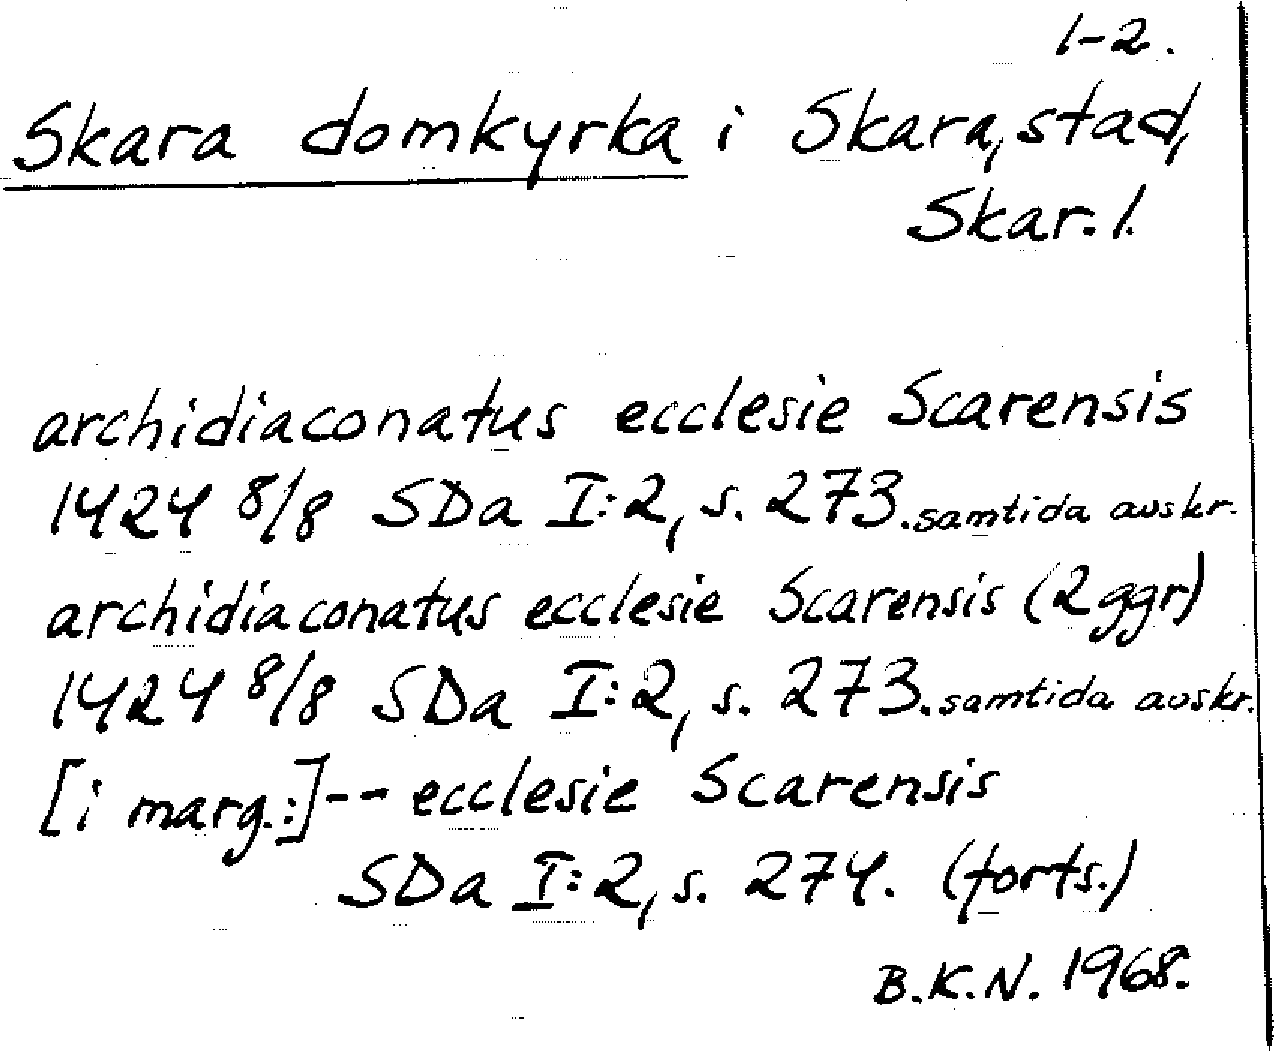 1-2.
Skara domkyrka i Skara, stad,
Skar. l.
archidiaconatus ecclesie Scarensis
1424 8/8 SDa I:2, s. 273. samtida avskr.
archidiaconatus ecclesie Scarensis (2 ggr)
1424 8/8 SDa I:2, s. 273. samtida avskr.
[i marg.:] -- ecclesie Scarensis
SDa I:2, s. 274. (forts.)
B.K.N. 1968.